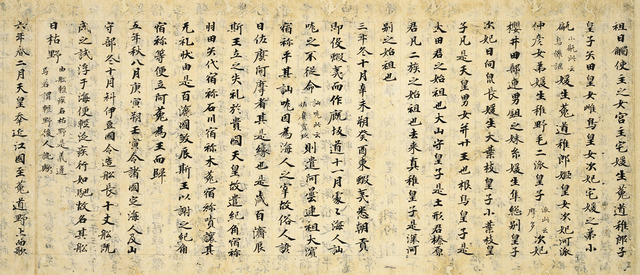 祖日觸使主之女宮主宅媛生菟道稚郎子
皇子矢田皇女雌鳥皇女次妃宅媛之弟小
甂媛生菟道稚郎姬皇女次妃河派
仲彥女弟媛生稚野毛二派皇子次妃
櫻井田部連男鉏之妹糸媛生隼總別皇子
次妃日向泉長媛生大葉枝皇子小葉枝皇
子凡是天皇男女并廿王也根鳥皇子是
大田君之始祖也大山守皇子是土形君榛原
君凡二族之始祖也去來真稚皇子是深河
別之始祖也
三年冬十月辛未朔癸酉東蝦夷悉朝貢
即役蝦夷而作厩坂道十一月處々海人訕
哤之不從命訕哤此云佐麼賣玖則遣阿曇連祖大濱
宿祢平其訕哤因爲海人之宰故俗人諺
曰佐麼阿摩者其是緣也是歲百濟辰
斯王立之失礼於貴國天皇故遣紀角宿祢
羽田矢代宿祢石川宿祢木菟宿祢嘖讓其
无礼狀由是百濟國殺辰斯王以謝之紀角
宿祢等便立阿花爲王而歸
五年秋八月庚寅朔壬寅令諸國定海人及山
守部冬十月科伊豆國令造船長十丈船既
成之試浮于海便輕泛疾行如馳故名其船
曰枯野由船輕疾名枯野是義違焉若謂輕野後人訛歟
六年春二月天皇幸近江國至菟道野上而歌